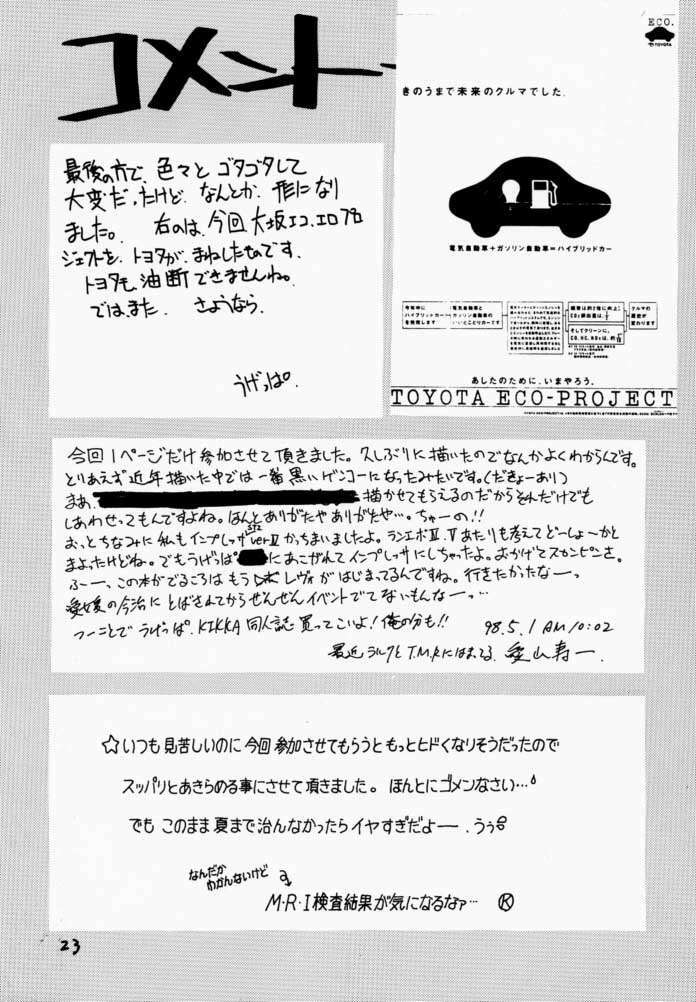 コメント
最後の方で、色々と ゴタゴタして
大変だったけど、なんとか、形になり
ました。 右のは、今回 大坂エコ、エロプロ
ジェクトを、トヨタが、まねしたものです。
トヨタも、油断できませんね。
では、また、 さようなら。
うげっぱ。
ECO.
TOYOTA
きのうまで未来のクルマでした。
電気自動車+ガソリン自動車=ハイブリッドカー
今年中に
ハイブリッドカー
を発売します
電気自動車と
ガソリン自動車の
いいとこどりカーです
燃費は約2倍に向上。
CO₂排出量は、1/2
そしてクリーンに。
CO, HC, NOxは、約1/10
クルマの
歴史が
変わります
あしたのために、いまやろう。
TOYOTA ECO-PROJECT
今回1ページだけ参加させて頂きました。久しぶりに描いたのでなんかよくわからんです。
とりあえず近年描いた中では一番黒いゲンコーになったみたいです。(だきょーあり)
まあ、 描かせてもらえるのだからそれだけでも
しあわせってもんですよね。ほんとありがたやありがたや…。ちゅーの!!
おっとちなみに私もインプレッサ STi verⅡ かっちまいましたよ。ランエボⅣ.Ⅴあたりも考えてどーしょ〜かと
まよったけどね。でもうげっぱ にあこがれてインプレッサにしちゃったよ。おかげでスカンピンさ。
ふー、この本がでるころは もう レヴォ がはじまってるんですね。行きたかったなーっ
愛媛の今治に とばされてからぜんぜんイベントでてないもんなーっ…
つーことで うげっぱ. KIKKA 同人誌 買ってこいよ! 俺の分も!!
98.5.1 AM10:02
最近 ラルクと T.M.Rにはまってる 愛山寿一.
☆いつも見苦しいのに今回参加させてもらうともっとヒドくなりそうだったので
スッパリとあきらめる事にさせて頂きました。ほんとにゴメンなさい…
でも このまま夏まで治んなかったらイヤすぎだよー.うぅ
なんだか
わかんないけど
M・R・I検査結果が気になるなァ… Ⓚ
23